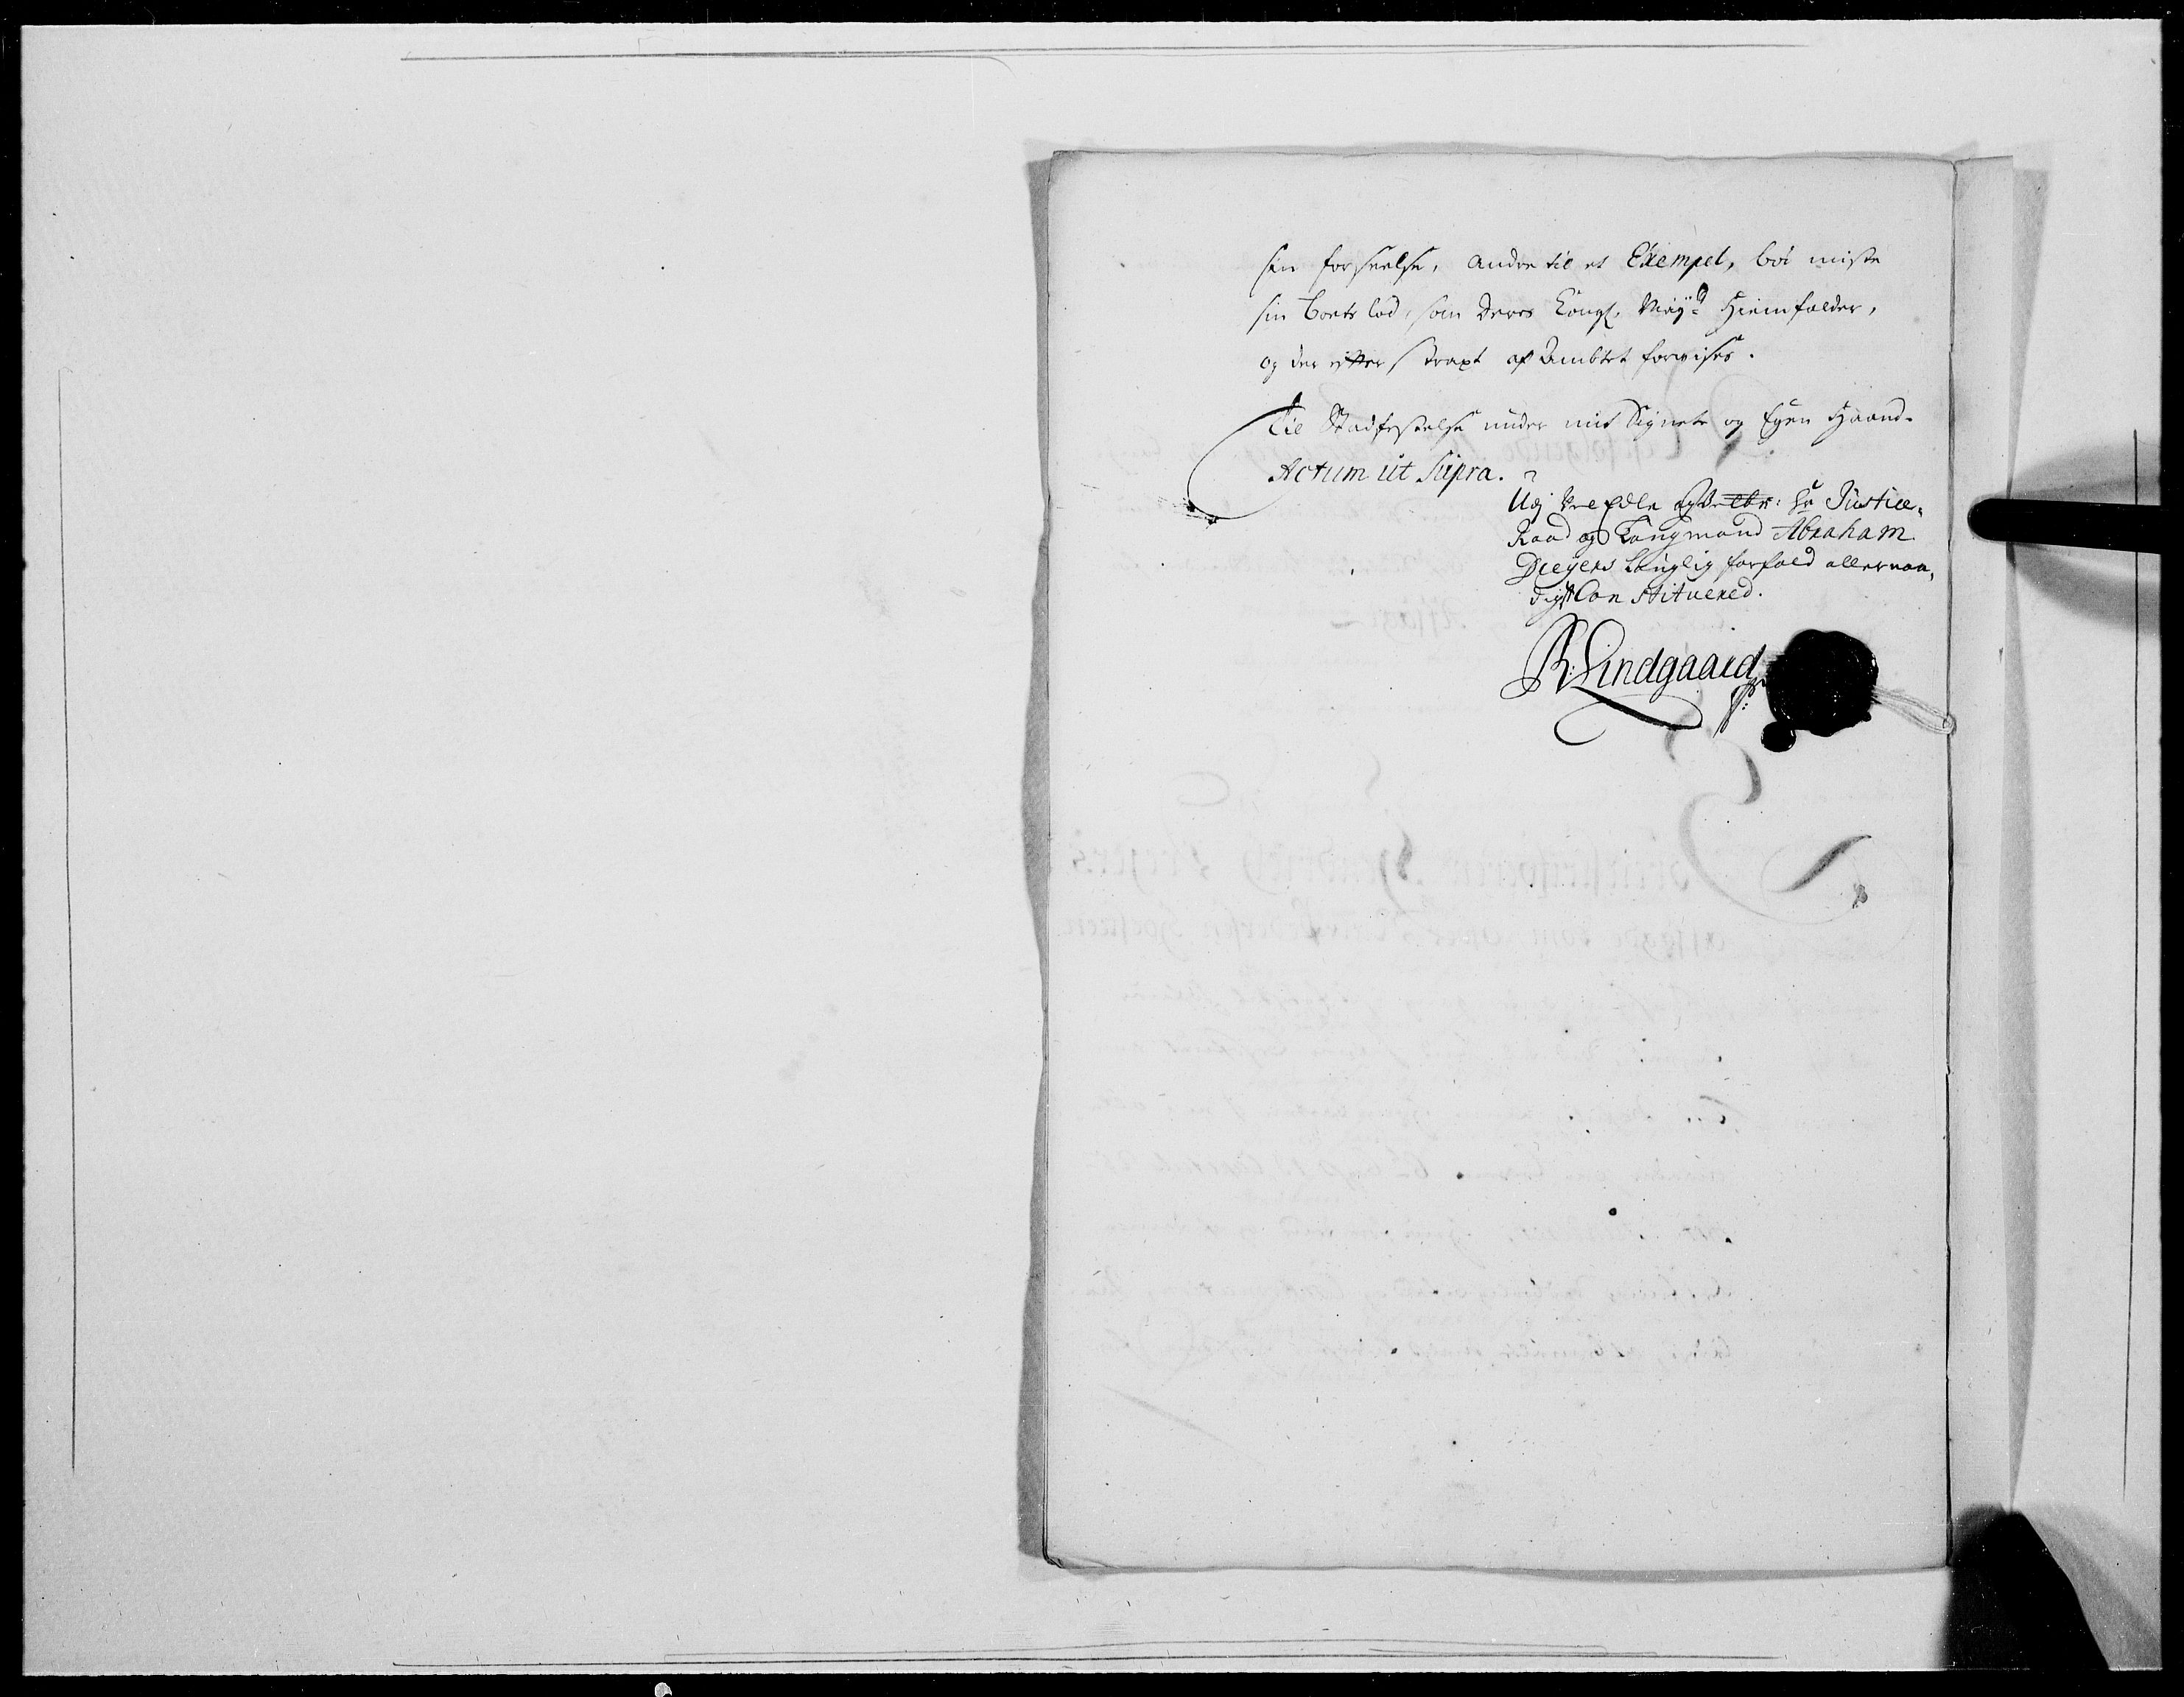 sin forseelse, andre til et Exempel, bör miste
sin boets lod, som Deres Kongl. Mayts Hiemfalder,
og der effter straxt af Ambtet forvises.
Til Stadfestelse under mit Signete og Egen Haand.
Actum ut Supra.
Udj Vel Edle og Velbr: Hr Justice-
Raad og Laugmand Abraham
Dreyers lauglig forfald allernaa-
digst Constituered.
R: Lindgaard